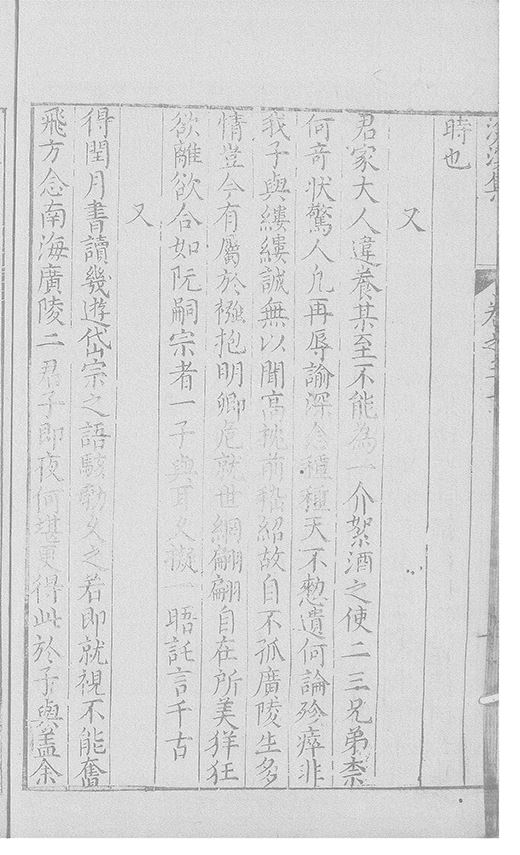 時也
又
君家大人違養某至不能為一介絮酒之使二三兄弟柰
何奇狀驚人凡再辱諭深念種種天不憖遺何論殄瘁非
我子與縷縷誠無以聞高枕前嵇紹故自不孤廣陵生多
情豈今有屬於襁抱明卿危就世網翩翩自在所美猂狂
欲離欲合如阮嗣宗者一子與耳久擬一晤託言千古
又
得閏月書讀幾遊岱宗之語駭動久之若即就視不能奮
飛方念南海廣陵二君子即夜何堪更得此於子與盖余